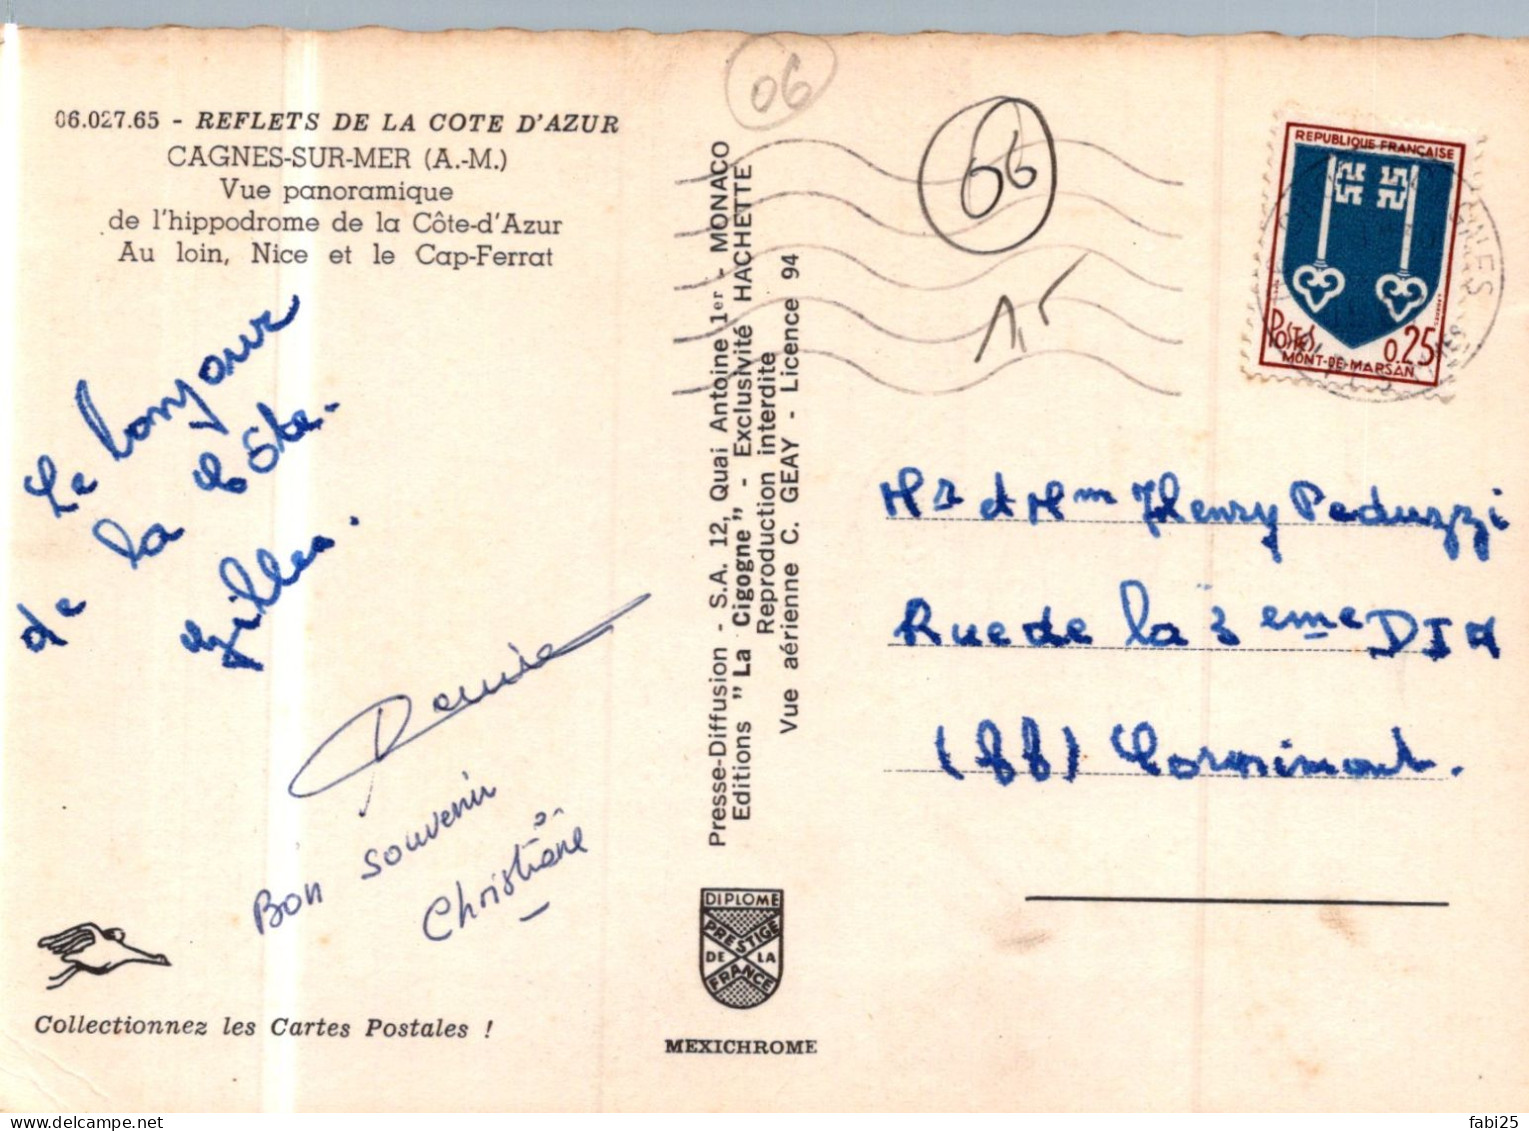 06.027.65 - REFLETS DE LA COTE D'AZUR
CAGNES-SUR-MER (A.-M.)
Vue panoramique
de l'hippodrome de la Côte-d'Azur
Au loin, Nice et le Cap-Ferrat
Le bonjour
de la Côte.
Gilles.
Bon souvenir
Christiane
Collectionnez les Cartes Postales !
Presse-Diffusion - S.A. 12, Quai Antoine 1er - MONACO
Editions "La Cigogne" - Exclusivité HACHETTE
Reproduction interdite
Vue aérienne C. GEAY - Licence 94
DIPLOME
PRESTIGE
DE LA
FRANCE
MEXICHROME
06
06
1,5
REPUBLIQUE FRANÇAISE
POSTES
0.25
MONT-DE-MARSAN
Mr et Mm Henry Peduzzi
Rue de la 3eme DIA
(88) Cornimont.
fabi25